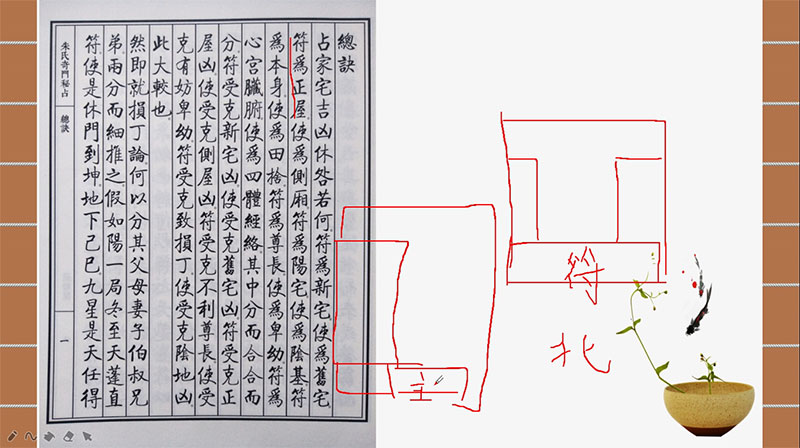 總訣
占家宅吉凶休咎若何符爲新宅使爲舊宅
符爲正屋使爲側廂符爲陽宅使爲陰基符
爲本身使爲田捨符爲尊長使爲卑幼符爲
心宮臟腑使爲四體經絡其中分而合合而
分符受克新宅凶使受克舊宅凶符受克正
屋凶使受克側屋凶符受克不利尊長使受
克有妨卑幼符受克致損丁使受克陰地凶
此大較也
然即就損丁論何以分其父母妻子伯叔兄
弟兩分而細推之假如陽一局冬至天蓬直
符使是休門到坤地下己巳九星是天任得
朱氏奇門秘占
總訣
一
符
北
主